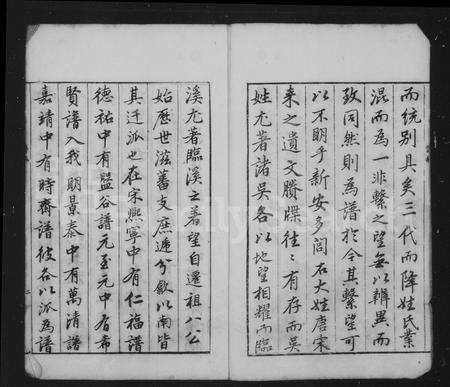 而統别具矣三代而降姓氏業
混而為一非繫之望無以辨異而
致同然則為譜於今其繫望可
以不明乎新安多閥右大姓唐宋
来之遺文賸牒往往有存而吳
姓尤著諸吳各以地望相耀而臨
溪尤著臨溪之著望自遷祖八公
始歷世滋蕃支庶遞分歙以南皆
其迁派也在宋熙寧中有仁福譜
德祐中有盬谷譜元至元中有希
賢譜入我明景泰中有萬清譜
嘉靖中有時齋譜彼各以派為譜